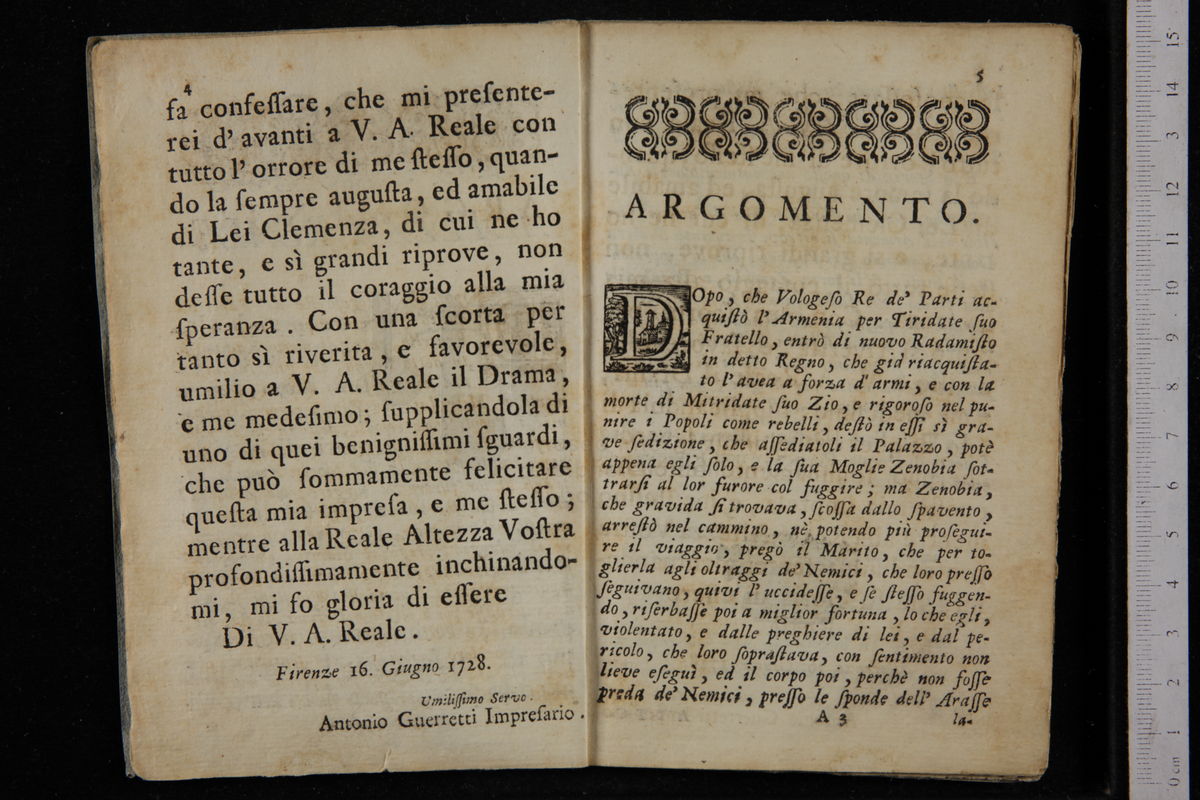 4
fa confeſſare, che mi preſente-
rei d' avanti a V. A. Reale con
tutto l' orrore di me ſteſſo, quan-
do la ſempre auguſta, ed amabile
di Lei Clemenza, di cui ne ho
tante, e sì grandi riprove, non
deſſe tutto il coraggio alla mia
ſperanza. Con una ſcorta per
tanto sì riverita, e favorevole,
umilio a V. A. Reale il Drama,
e me medeſimo; ſupplicandola di
uno di quei benigniſſimi ſguardi,
che può ſommamente felicitare
queſta mia impreſa, e me ſteſſo;
mentre alla Reale Altezza Voſtra
profondiſſimamente inchinando-
mi, mi fo gloria di eſſere
Di V. A. Reale.
Firenze 16. Giugno 1728.
Umiliſſimo Servo.
Antonio Guerretti Impreſario.
5
ARGOMENTO.
DOpo, che Vologeſo Re de' Parti ac-
quiſtò l' Armenia per Tiridate ſuo
Fratello, entrò di nuovo Radamiſto
in detto Regno, che già riacquiſta-
to l' avea a forza d' armi, e con la
morte di Mitridate ſuo Zio, e rigoroſo nel pu-
nire i Popoli come rebelli, deſtò in eſſi sì gra-
ve ſedizione, che aſſediatoli il Palazzo, potè
appena egli ſolo, e la ſua Moglie Zenobia ſot-
trarſi al lor furore col fuggire; ma Zenobia,
che gravida ſi trovava, ſcoſſa dallo ſpavento,
arreſtò nel cammino, nè potendo più proſegui-
re il viaggio, pregò il Marito, che per to-
glierla agli oltraggi de' Nemici, che loro preſſo
ſeguivano, quivi l' uccideſſe, e ſe ſteſſo fuggen-
do, riſerbaſſe poi a miglior fortuna, lo che egli,
violentato, e dalle preghiere di lei, e dal pe-
ricolo, che loro ſopraſtava, con ſentimento non
lieve eſeguì, ed il corpo poi, perchè non foſſe
preda de' Nemici, preſſo le ſponde dell' Araſſe
A 3 la-
0 cm 1 2 3 4 5 6 7 8 9 10 11 12 13 14 15